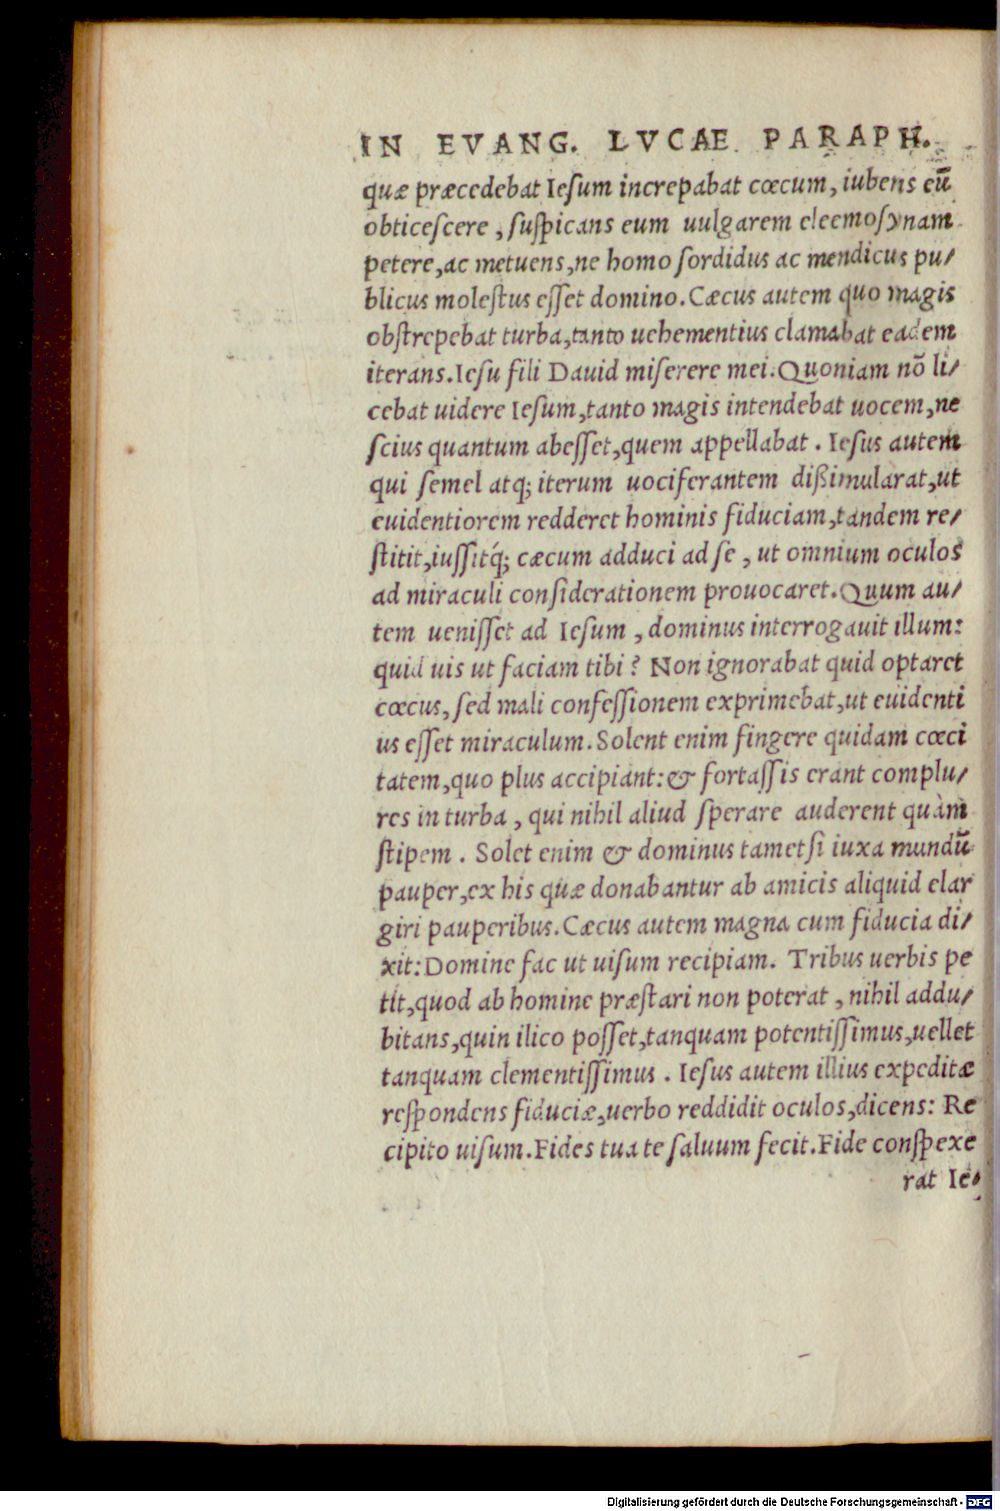 IN EVANG. LVCAE PARAPH.
quæ præcedebat Iesum increpabat cœcum, iubens eū
obticescere, suspicans eum uulgarem eleemosynam
petere, ac metuens, ne homo sordidus ac mendicus pu/
blicus molestus esset domino. Cæcus autem quo magis
obstrepebat turba, tanto uehementius clamabat eadem
iterans. Iesu fili Dauid miserere mei. Quoniam nō li/
cebat uidere Iesum, tanto magis intendebat uocem, ne
scius quantum abesset, quem appellabat. Iesus autem
qui semel atq; iterum uociferantem dißimularat, ut
euidentiorem redderet hominis fiduciam, tandem re/
stitit, iussitq́; cæcum adduci ad se, ut omnium oculos
ad miraculi considerationem prouocaret. Quum au/
tem uenisset ad Iesum, dominus interrogauit illum:
quid uis ut faciam tibi? Non ignorabat quid optaret
cœcus, sed mali confessionem exprimebat, ut euidenti
us esset miraculum. Solent enim fingere quidam cœci
tatem, quo plus accipiant: & fortassis erant complu/
res in turba, qui nihil aliud sperare auderent quàm
stipem. Solet enim & dominus tametsi iuxa mundū
pauper, ex his quæ donabantur ab amicis aliquid elar
giri pauperibus. Cæcus autem magna cum fiducia di/
xit: Domine fac ut uisum recipiam. Tribus uerbis pe
tit, quod ab homine præstari non poterat, nihil addu/
bitans, quin ilico posset, tanquam potentissimus, uellet
tanquam clementissimus. Iesus autem illius expeditæ
respondens fiduciæ, uerbo reddidit oculos, dicens: Re
cipito uisum. Fides tua te saluum fecit. Fide conspexe
rat Ie/
Digitalisierung gefördert durch die Deutsche Forschungsgemeinschaft - DFG